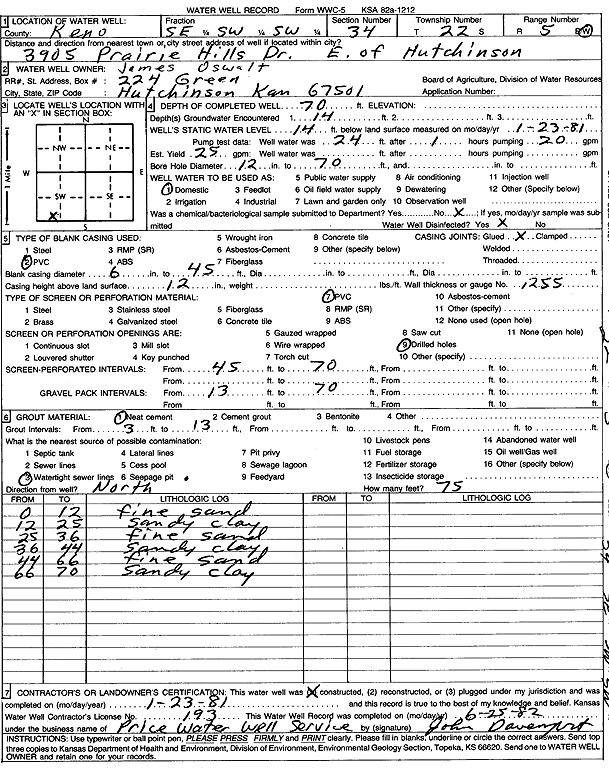 WATER WELL RECORD Form WWC-5 KSA 82a-1212
1 LOCATION OF WATER WELL: Fraction Section Number Township Number Range Number
County: Reno SE ¼ SW ¼ SW ¼ 34 T 22 S R 5 E/W
Distance and direction from nearest town or city street address of well if located within city?
3905 Prairie Hills Dr. E. of Hutchinson
2 WATER WELL OWNER: James Oswalt
RR#, St. Address, Box # : 224 Green Board of Agriculture, Division of Water Resources
City, State, ZIP Code : Hutchinson Kan 67501 Application Number:
3 LOCATE WELL'S LOCATION WITH AN "X" IN SECTION BOX:
N
NW NE
W E
SW SE
X
S
1 Mile
4 DEPTH OF COMPLETED WELL 70 ft. ELEVATION:
Depth(s) Groundwater Encountered 1. 14 ft. 2. ft. 3. ft.
WELL'S STATIC WATER LEVEL 14 ft. below land surface measured on mo/day/yr 1-23-81
Pump test data: Well water was 24 ft. after 1 hours pumping 20 gpm
Est. Yield 25 gpm: Well water was ft. after hours pumping gpm
Bore Hole Diameter 12 in. to 70 ft., and in. to ft.
WELL WATER TO BE USED AS: 5 Public water supply 8 Air conditioning 11 Injection well
1 Domestic 3 Feedlot 6 Oil field water supply 9 Dewatering 12 Other (Specify below)
2 Irrigation 4 Industrial 7 Lawn and garden only 10 Observation well
Was a chemical/bacteriological sample submitted to Department? Yes No X ; If yes, mo/day/yr sample was submitted
Water Well Disinfected? Yes X No
5 TYPE OF BLANK CASING USED: 5 Wrought iron 8 Concrete tile CASING JOINTS: Glued X Clamped
1 Steel 3 RMP (SR) 6 Asbestos-Cement 9 Other (specify below) Welded
2 PVC 4 ABS 7 Fiberglass Threaded
Blank casing diameter 6 in. to 45 ft., Dia in. to ft., Dia in. to ft.
Casing height above land surface 12 in., weight lbs./ft. Wall thickness or gauge No. .255
TYPE OF SCREEN OR PERFORATION MATERIAL: 7 PVC 10 Asbestos-cement
1 Steel 3 Stainless steel 5 Fiberglass 8 RMP (SR) 11 Other (specify)
2 Brass 4 Galvanized steel 6 Concrete tile 9 ABS 12 None used (open hole)
SCREEN OR PERFORATION OPENINGS ARE: 5 Gauzed wrapped 8 Saw cut 11 None (open hole)
1 Continuous slot 3 Mill slot 6 Wire wrapped 9 Drilled holes
2 Louvered shutter 4 Key punched 7 Torch cut 10 Other (specify)
SCREEN-PERFORATED INTERVALS: From 45 ft. to 70 ft., From ft. to ft.
From ft. to ft., From ft. to ft.
GRAVEL PACK INTERVALS: From 13 ft. to 70 ft., From ft. to ft.
From ft. to ft., From ft. to ft.
6 GROUT MATERIAL: 1 Neat cement 2 Cement grout 3 Bentonite 4 Other
Grout Intervals: From 3 ft. to 13 ft., From ft. to ft., From ft. to ft.
What is the nearest source of possible contamination: 10 Livestock pens 14 Abandoned water well
1 Septic tank 4 Lateral lines 7 Pit privy 11 Fuel storage 15 Oil well/Gas well
2 Sewer lines 5 Cess pool 8 Sewage lagoon 12 Fertilizer storage 16 Other (specify below)
3 Watertight sewer lines 6 Seepage pit 9 Feedyard 13 Insecticide storage
Direction from well? North How many feet? 75
FROM TO LITHOLOGIC LOG FROM TO LITHOLOGIC LOG
0 12 fine sand
12 25 sandy clay
25 36 fine sand
36 44 sandy clay
44 66 fine sand
66 70 sandy clay
7 CONTRACTOR'S OR LANDOWNER'S CERTIFICATION: This water well was (1) constructed, (2) reconstructed, or (3) plugged under my jurisdiction and was
completed on (mo/day/year) 1-23-81 and this record is true to the best of my knowledge and belief. Kansas
Water Well Contractor's License No. 193 This Water Well Record was completed on (mo/day/yr) 6-25-82
under the business name of Price Water Well Service by (signature) John Davenport
INSTRUCTIONS: Use typewriter or ball point pen, PLEASE PRESS FIRMLY and PRINT clearly. Please fill in blanks, underline or circle the correct answers. Send top
three copies to Kansas Department of Health and Environment, Division of Environment, Environmental Geology Section, Topeka, KS 66620. Send one to WATER WELL
OWNER and retain one for your records.